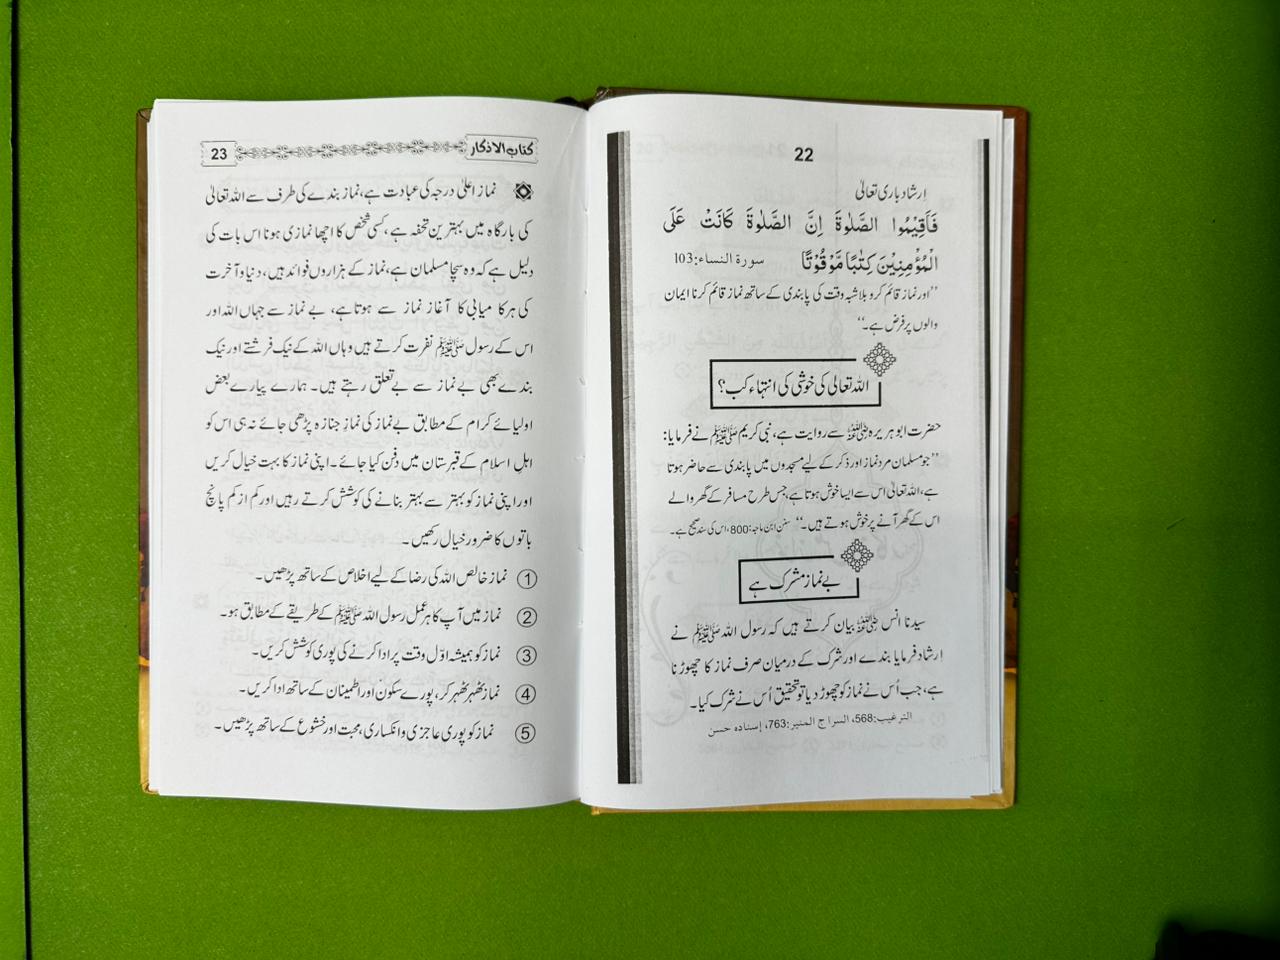 22
اِرشاد باری تعالیٰ
فَاَقِیْمُوا الصَّلٰوةَ اِنَّ الصَّلٰوةَ کَانَتْ عَلَی
الْمُؤْمِنِیْنَ کِتٰبًا مَّوْقُوْتًا سورة النساء:103
”اور نماز قائم کرو بلاشبہ وقت کی پابندی کے ساتھ نماز قائم کرنا ایمان
والوں پر فرض ہے۔“
اللہ تعالیٰ کی خوشی کی انتہاء کب؟
حضرت ابو ہریرہ رضی اللہ عنہ سے روایت ہے، نبی کریم ﷺ نے فرمایا:
”جو مسلمان مرد نماز اور ذکر کے لیے مسجدوں میں پابندی سے حاضر ہوتا
ہے، اللہ تعالیٰ اس سے ایسا خوش ہوتا ہے، جس طرح مسافر کے گھر والے
اس کے گھر آنے پر خوش ہوتے ہیں۔“ سنن ابن ماجہ:800، اس کی سند صحیح ہے۔
بے نماز مشرک ہے
سیدنا انس رضی اللہ عنہ بیان کرتے ہیں کہ رسول اللہ ﷺ نے
اِرشاد فرمایا بندے اور شرک کے درمیان صرف نماز کا چھوڑنا
ہے، جب اُس نے نماز کو چھوڑ دیا تو تحقیق اُس نے شرک کیا۔
الترغیب:568، السراج المنیر:763، إسنادہ حسن
کتاب الاذکار 23
نماز اعلیٰ درجہ کی عبادت ہے، نماز بندے کی طرف سے اللہ تعالیٰ
کی بارگاہ میں بہترین تحفہ ہے، کسی شخص کا اچھا نمازی ہونا اس بات کی
دلیل ہے کہ وہ سچا مسلمان ہے، نماز کے ہزاروں فوائد ہیں، دنیا و آخرت
کی ہر کامیابی کا آغاز نماز سے ہوتا ہے، بے نماز سے جہاں اللہ اور
اس کے رسول ﷺ نفرت کرتے ہیں وہاں اللہ کے نیک فرشتے اور نیک
بندے بھی بے نماز سے بے تعلق رہتے ہیں۔ ہمارے پیارے بعض
اولیائے کرام کے مطابق بے نماز کی نمازِ جنازہ پڑھی جائے نہ ہی اس کو
اہلِ اسلام کے قبرستان میں دفن کیا جائے۔ اپنی نماز کا بہت خیال کریں
اور اپنی نماز کو بہتر سے بہتر بنانے کی کوشش کرتے رہیں اور کم از کم پانچ
باتوں کا ضرور خیال رکھیں۔
① نماز خالص اللہ کی رضا کے لیے اخلاص کے ساتھ پڑھیں۔
② نماز میں آپ کا ہر عمل رسول اللہ ﷺ کے طریقے کے مطابق ہو۔
③ نماز کو ہمیشہ اوّل وقت پر ادا کرنے کی پوری کوشش کریں۔
④ نماز ٹھہر ٹھہر کر، پورے سکون اور اطمینان کے ساتھ ادا کریں۔
⑤ نماز کو پوری عاجزی و انکساری، محبت اور خشوع کے ساتھ پڑھیں۔